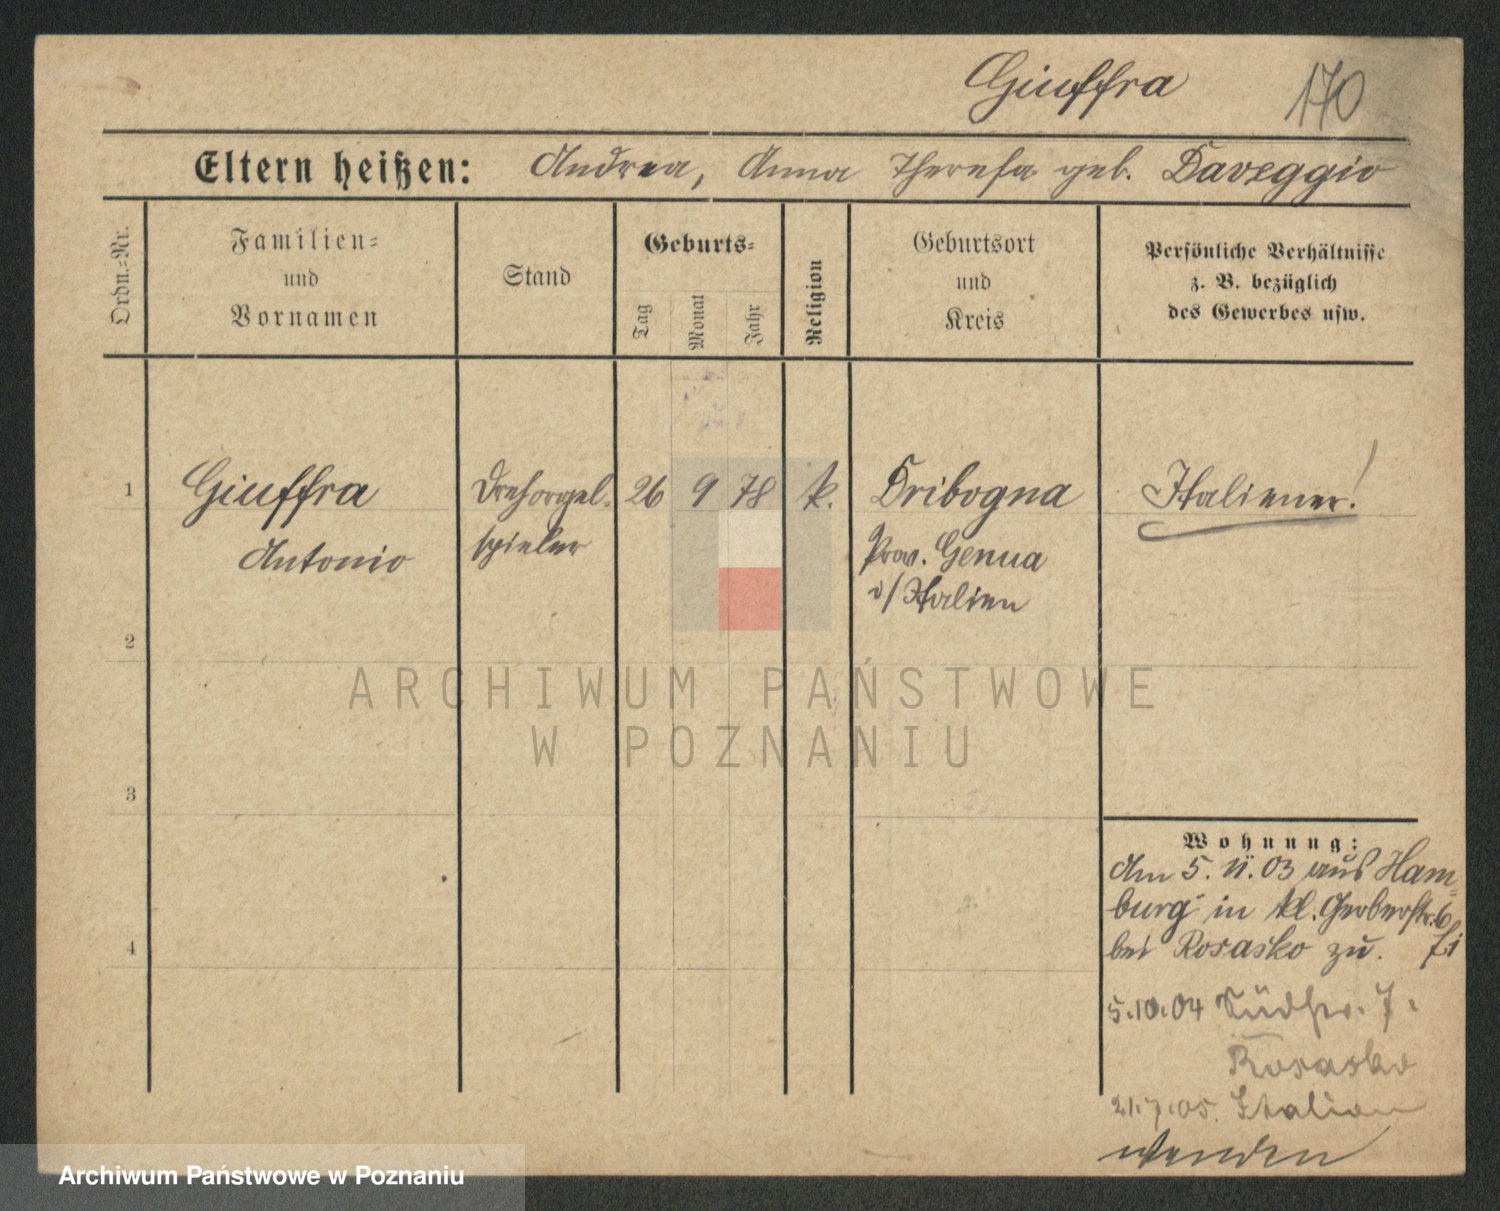 Giuffra 170
Eltern heißen: Andrea, Anna Theresa geb. Daveggio
Ordn.-Nr.
Familien-
und
Vornamen
Stand
Geburts-
Tag
Monat
Jahr
Religion
Geburtsort
und
Kreis
Persönliche Verhältnisse
z. B. bezüglich
des Gewerbes usw.
1 Giuffra Drehorgel- 26 9 78 k. Dribogna Italiener!
Antonio spieler Prov. Genua
i/Italien
2
3
4
ARCHIWUM PAŃSTWOWE
W POZNANIU
Wohnung:
Am 5. 11. 03 aus Ham-
burg in kl. Gerberstr. 6
bei Rosasko zu.
5.10.04 Südstr. 7.
Rosasko
21.7.05. Italien
wenden
Archiwum Państwowe w Poznaniu